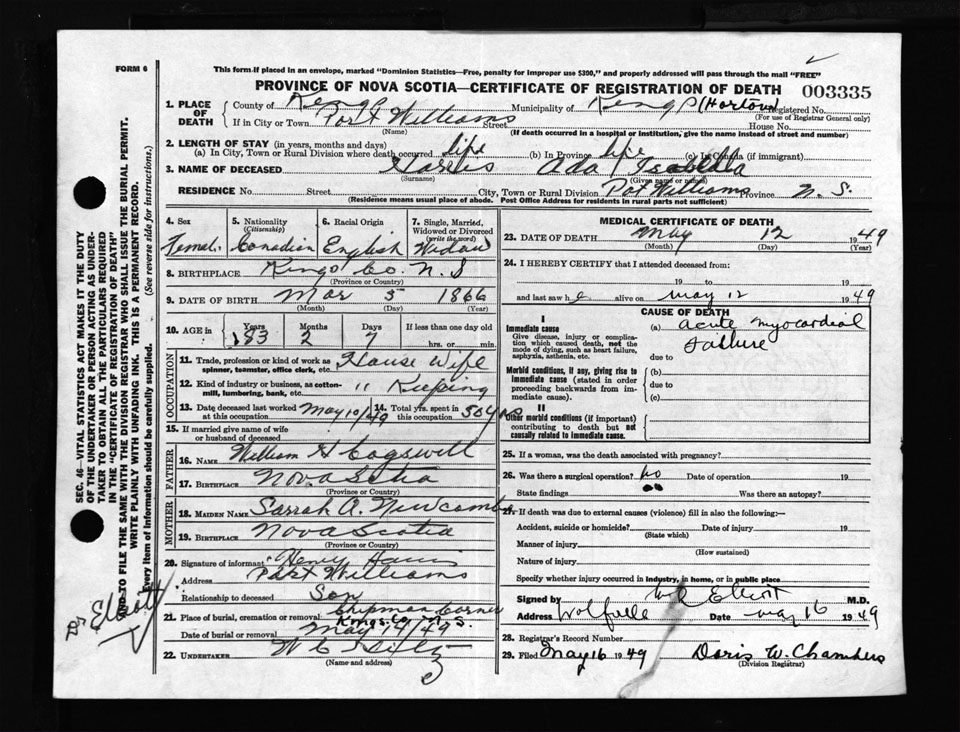 FORM 6
This form if placed in an envelope, marked "Dominion Statistics—Free, penalty for improper use $300," and properly addressed will pass through the mail "FREE"
PROVINCE OF NOVA SCOTIA—CERTIFICATE OF REGISTRATION OF DEATH 003335
1. PLACE OF DEATH
County of Kings Municipality of Kings (Horton) Registered No.
(For use of Registrar General only)
If in City or Town Port Williams Street House No.
(Name) (If death occurred in a hospital or institution, give the name instead of street and number)
2. LENGTH OF STAY (in years, months and days)
(a) In City, Town or Rural Division where death occurred life (b) In Province life (c) In Canada (if immigrant)
3. NAME OF DECEASED Harris Ada Isabella
(Surname) (Given name or names)
RESIDENCE No. Street City, Town or Rural Division Pot Williams Province N. S.
(Residence means usual place of abode. Post Office Address for residents in rural parts not sufficient)
4. Sex 5. Nationality (Citizenship) 6. Racial Origin 7. Single, Married, Widowed or Divorced (write the word)
Female Canadian English Widow
8. BIRTHPLACE Kings Co. N. S
(Province or Country)
9. DATE OF BIRTH Mar 5 1866
(Month) (Day) (Year)
10. AGE in Years Months Days If less than one day old
83 2 7 hrs. or min.
OCCUPATION
11. Trade, profession or kind of work as spinner, teamster, office clerk, etc. House Wife
12. Kind of industry or business, as cotton-mill, lumbering, bank, etc. " Keeping
13. Date deceased last worked at this occupation May 10/49 14. Total yrs. spent in this occupation 50 yrs
15. If married give name of wife or husband of deceased
FATHER
16. NAME William H Cogswell
17. BIRTHPLACE Nova Scotia
(Province or Country)
MOTHER
18. MAIDEN NAME Sarrah A. Newcombe
19. BIRTHPLACE Nova Scotia
(Province or Country)
20. Signature of informant Henry Harris
Address Port Williams
Relationship to deceased Son
21. Place of burial, cremation or removal Chipman Corner
Kings Co N. S.
Date of burial or removal May 14/49
22. UNDERTAKER W C
(Name and address)
MEDICAL CERTIFICATE OF DEATH
23. DATE OF DEATH May 12 1949
(Month) (Day) (Year)
24. I HEREBY CERTIFY that I attended deceased from:
19 to 19
and last saw h e alive on may 12 1949
CAUSE OF DEATH
I
Immediate cause (a) acute myocardial
Give disease, injury or complication which caused death, not the mode of dying, such as heart failure, asphyxia, asthenia, etc. failure
due to
Morbid conditions, if any, giving rise to immediate cause (stated in order proceeding backwards from immediate cause). (b)
due to
(c)
II
Other morbid conditions (if important) contributing to death but not causally related to immediate cause.
25. If a woman, was the death associated with pregnancy?
26. Was there a surgical operation? no Date of operation 19
State findings Was there an autopsy?
27. If death was due to external causes (violence) fill in also the following:—
Accident, suicide or homicide? Date of injury 19
(State which)
Manner of injury
(How sustained)
Nature of injury
Specify whether injury occurred in industry, in home, or in public place
Signed by Elliott M.D.
Address Wolfville Date may 16 1949
28. Registrar's Record Number
29. Filed May 16 1949 Doris W. Chambers
(Division Registrar)
SEC. 46—VITAL STATISTICS ACT MAKES IT THE DUTY
OF THE UNDERTAKER OR PERSON ACTING AS UNDER-
TAKER TO OBTAIN ALL THE PARTICULARS REQUIRED
IN THE "CERTIFICATE OF REGISTRATION OF DEATH"
AND TO FILE THE SAME WITH THE DIVISION REGISTRAR WHO SHALL ISSUE THE BURIAL PERMIT.
WRITE PLAINLY WITH UNFADING INK. THIS IS A PERMANENT RECORD.
Every Item of Information should be carefully supplied. (See reverse side for instructions.)
Dr Elliott